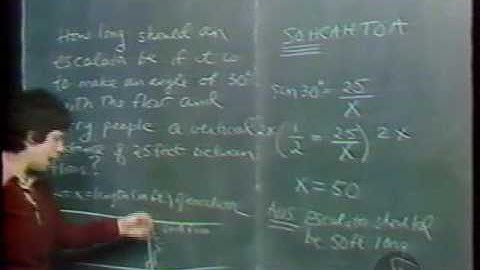 How long should an
escalator be if it is
to make an angle of 30°
with the floor and
carry people a vertical
of 25 feet between
floors?
Let x = length (in ft.) of escalator
SOHCAHTOA
sin 30° = 25/x
2x(1/2 = 25/x)2x
x = 50
Ans. Escalator should
be 50 ft long